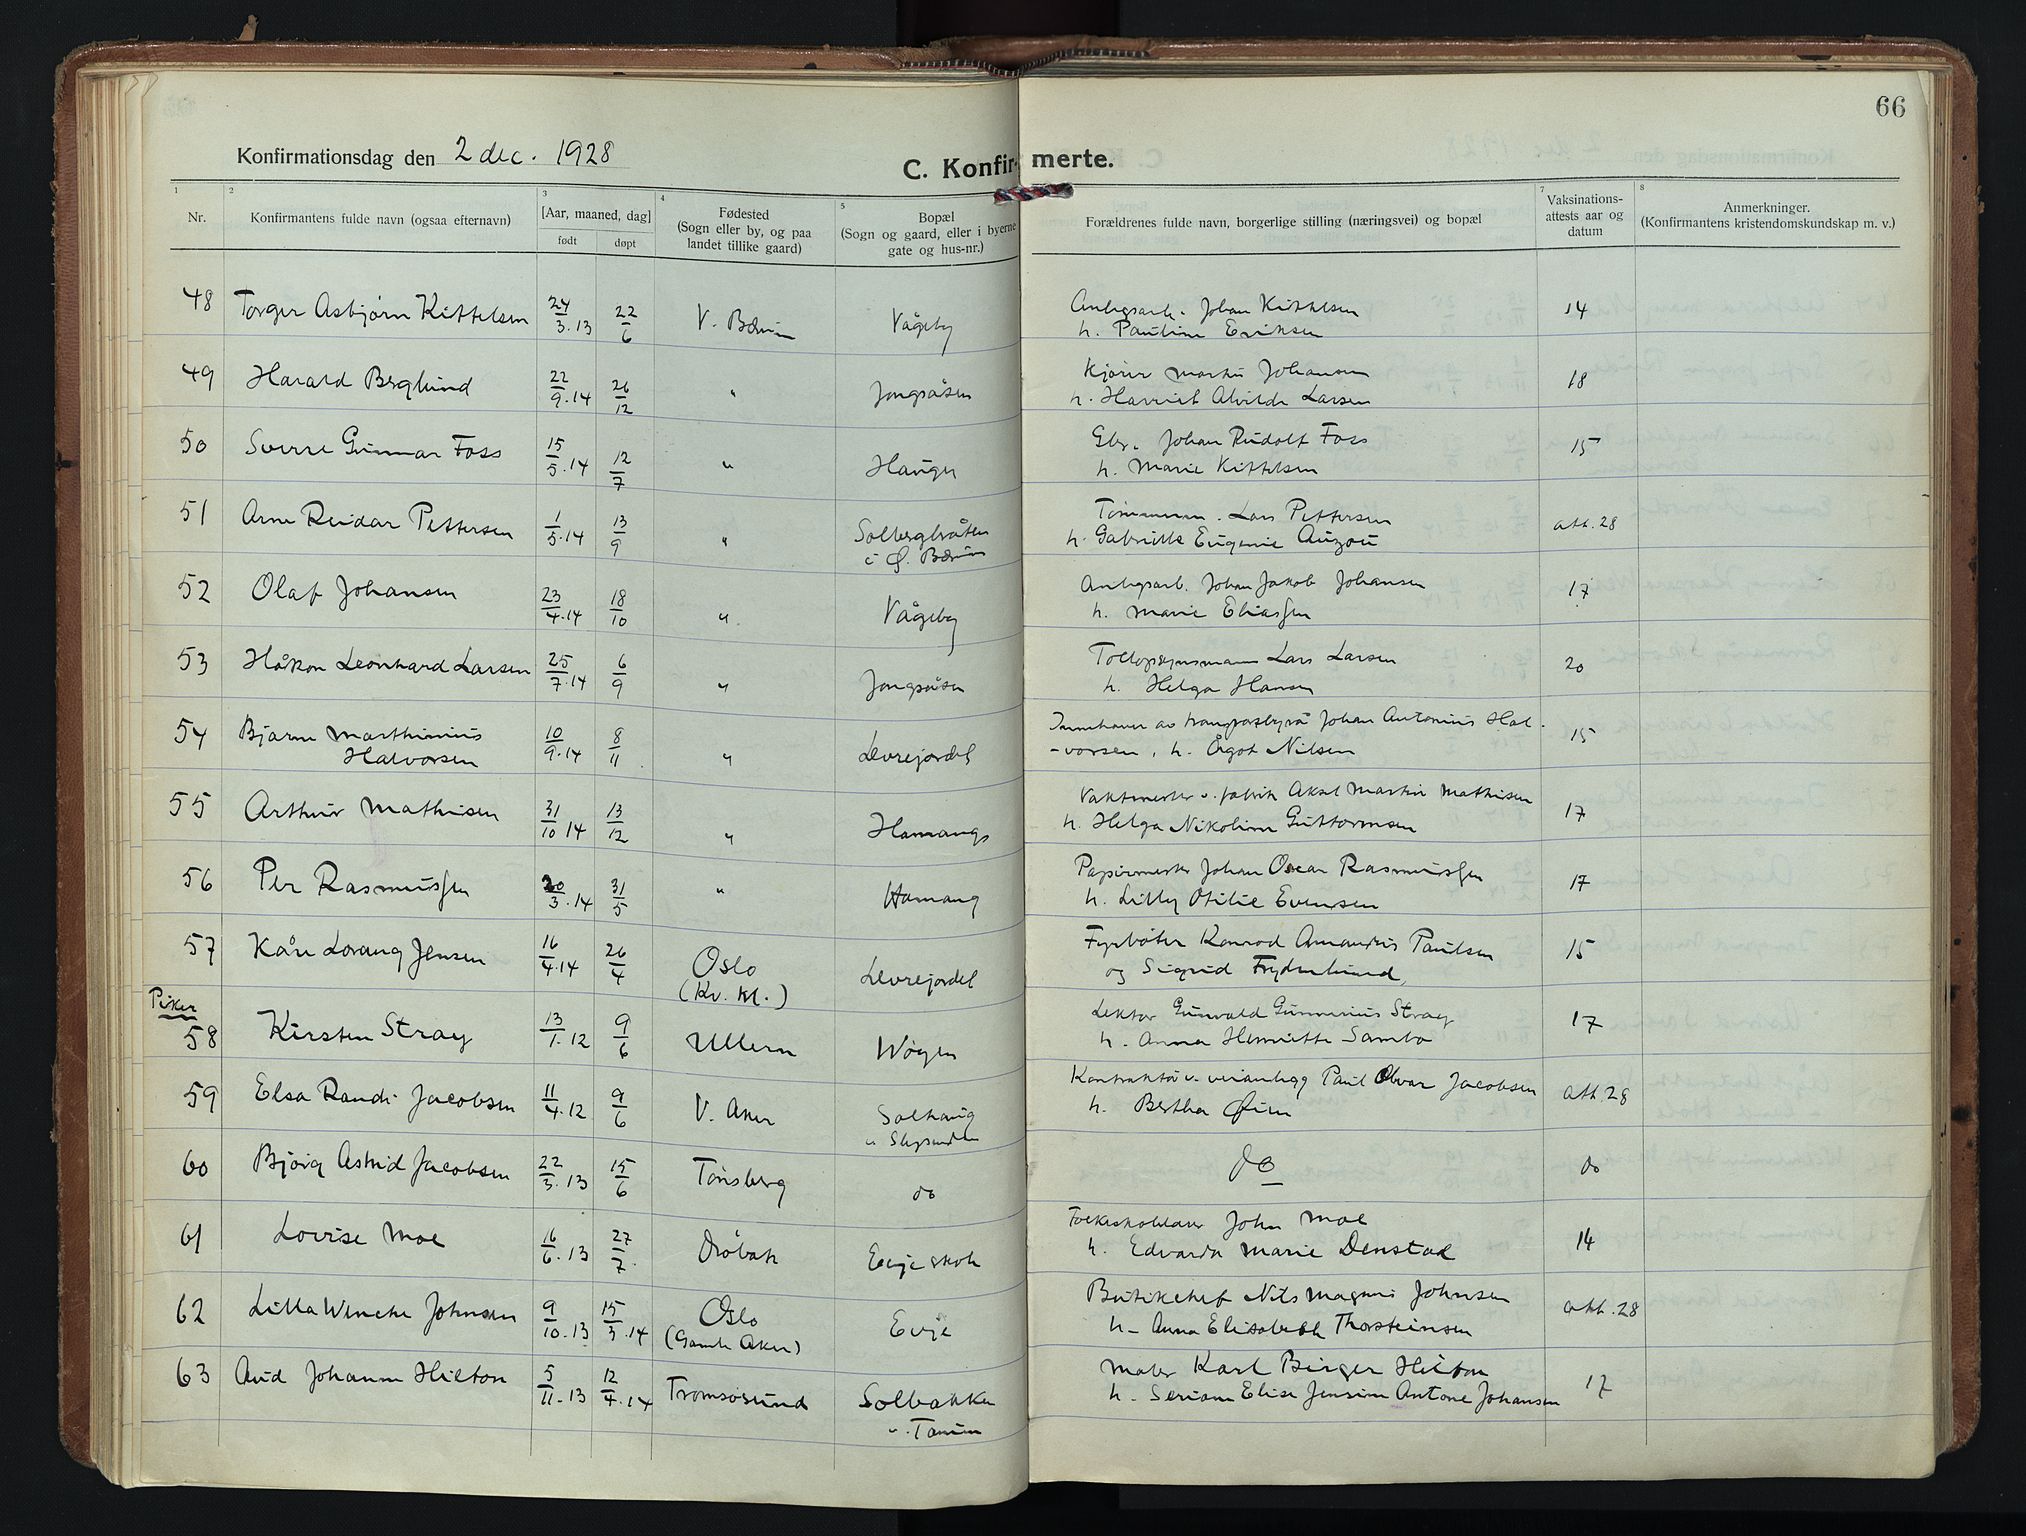 66
Konfirmationsdag den 2 dec. 1928
C. Konfirmerte.
1 2 3 4 5 7 8
Nr.
Konfirmantens fulde navn (ogsaa efternavn)
[Aar, maaned, dag]
født døpt
Fødested
(Sogn eller by, og paa
landet tillike gaard)
Bopæl
(Sogn og gaard, eller i byerne
gate og hus-nr.)
Forældrenes fulde navn, borgerlige stilling (næringsvei) og bopæl
Vaksinations-
attests aar og
datum
Anmerkninger.
(Konfirmantens kristendomskundskap m. v.)
48 Torger Asbjørn Kittelsen 24/3.13 22/6 V. Bærum Vågeby Anlegsarb. Johan Kittelsen 14
h. Pauline Eriksen
49 Harald Berglund 22/9.14 26/12 " Jongsåsen Kjører Martin Johansen 18
h. Harriet Alvilde Larsen
50 Sverre Gunnar Foss 15/5.14 12/7 " Hauger Gbr. Johan Rudolf Foss 15
h. Marie Kittelsen
51 Arne Reidar Pettersen 1/5.14 13/9 " Solbergbråten Tømmerm. Lars Pettersen att. 28
i Ø. Bærum h. Gabrielle Eugenie Auzou
52 Olaf Johansen 23/4.14 18/10 " Vågeby Anlegsarb. Johan Jakob Johansen 17
h. Marie Eliassen
53 Håkon Leonhard Larsen 25/7.14 6/9 " Jongsåsen Tollopsynsmann Lars Larsen 20
h. Helga Hansen
54 Bjarne Marthinius 10/9.14 8/11 " Levrejordet Innehaver av transportbyrå Johan Antonius Hal- 15
Halvorsen -vorsen, h. Ågot Nilsen
55 Arthur Mathisen 31/10 14 13/12 " Hamangs Vaktmester v. fabrik Aksel Martin Mathisen 17
h. Helga Nikoline Guttormsen
56 Per Rasmussen 20/3.14 31/5 " Hamang Papirmester Johan Oscar Rasmussen 17
h. Lilly Otilie Evensen
57 Kåre Lorang Jensen 16/4.14 26/4 Oslo Levrejordet Fyrbøter Konrad Amandus Paulsen 15
(Kv. kl.) og Sigrid Frydenlund,
Piker
58 Kirsten Stray 13/1.12 9/6 Ullern Wøyen Lektor Gunvald Gunnerius Stray 17
h. Anna Henriette Sambo
59 Elsa Randi Jacobsen 11/4.12 9/6 V. Aker Solhaug Kontraktør v. veianlegg Paul Olvar Jacobsen att. 28
v. Slependen h. Bertha Øien
60 Bjørg Astrid Jacobsen 22/3.13 15/6 Tønsberg do do do
61 Lovise Moe 16/6.13 27/7. Drøbak Evje skole Folkeskolelærer John Moe 14
h. Edvarda Marie Denstad
62 Lilla Wencke Johnsen 9/10.13 15/3.14 Oslo Evje Butikchef Nils Magnus Johnsen att. 28
(Gamle Aker) h. Anna Elisabeth Thorsteinsen
63 Aud Johanne Hilton 5/11.13 12/4.14 Tromsøsund Solbakken Maler Karl Birger Hilton 17
v. Tanum h. Seriane Elise Jensine Antone Johansen